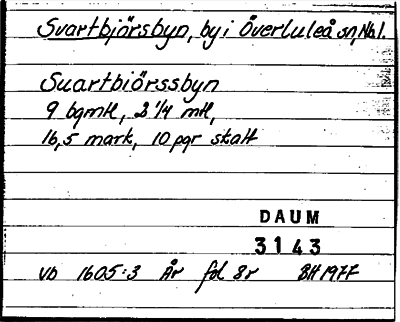 Svartbjörsbyn, by i Överluleå sn, Nbl.
Suartbiörssbyn
9 bgmtl, 2 1/4 mtl,
16,5 mark, 10 pgr skatt
DAUM
3143
VD 1605:3 År fol 8r BH 1977